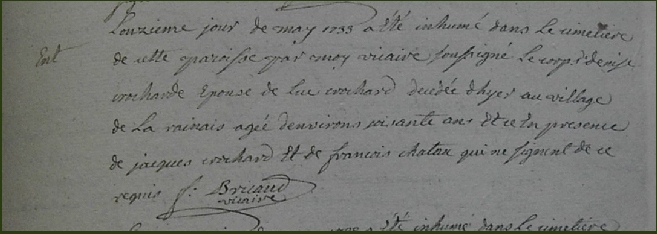 Lonzieme jour de may 1733 a été inhumé dans le cimetiere
Ent de cette paroisse par moy vicaire soussigné le corps denise
crocharde Epouse de luc crochard decedée dhyer au village
de La rainais agée denvirons soisante ans Et ce En presence
de jacques crochard Et de francois chatau qui ne signent de ce
requis f. Bricaud
vicaire
a été inhumé dans le cimetiere